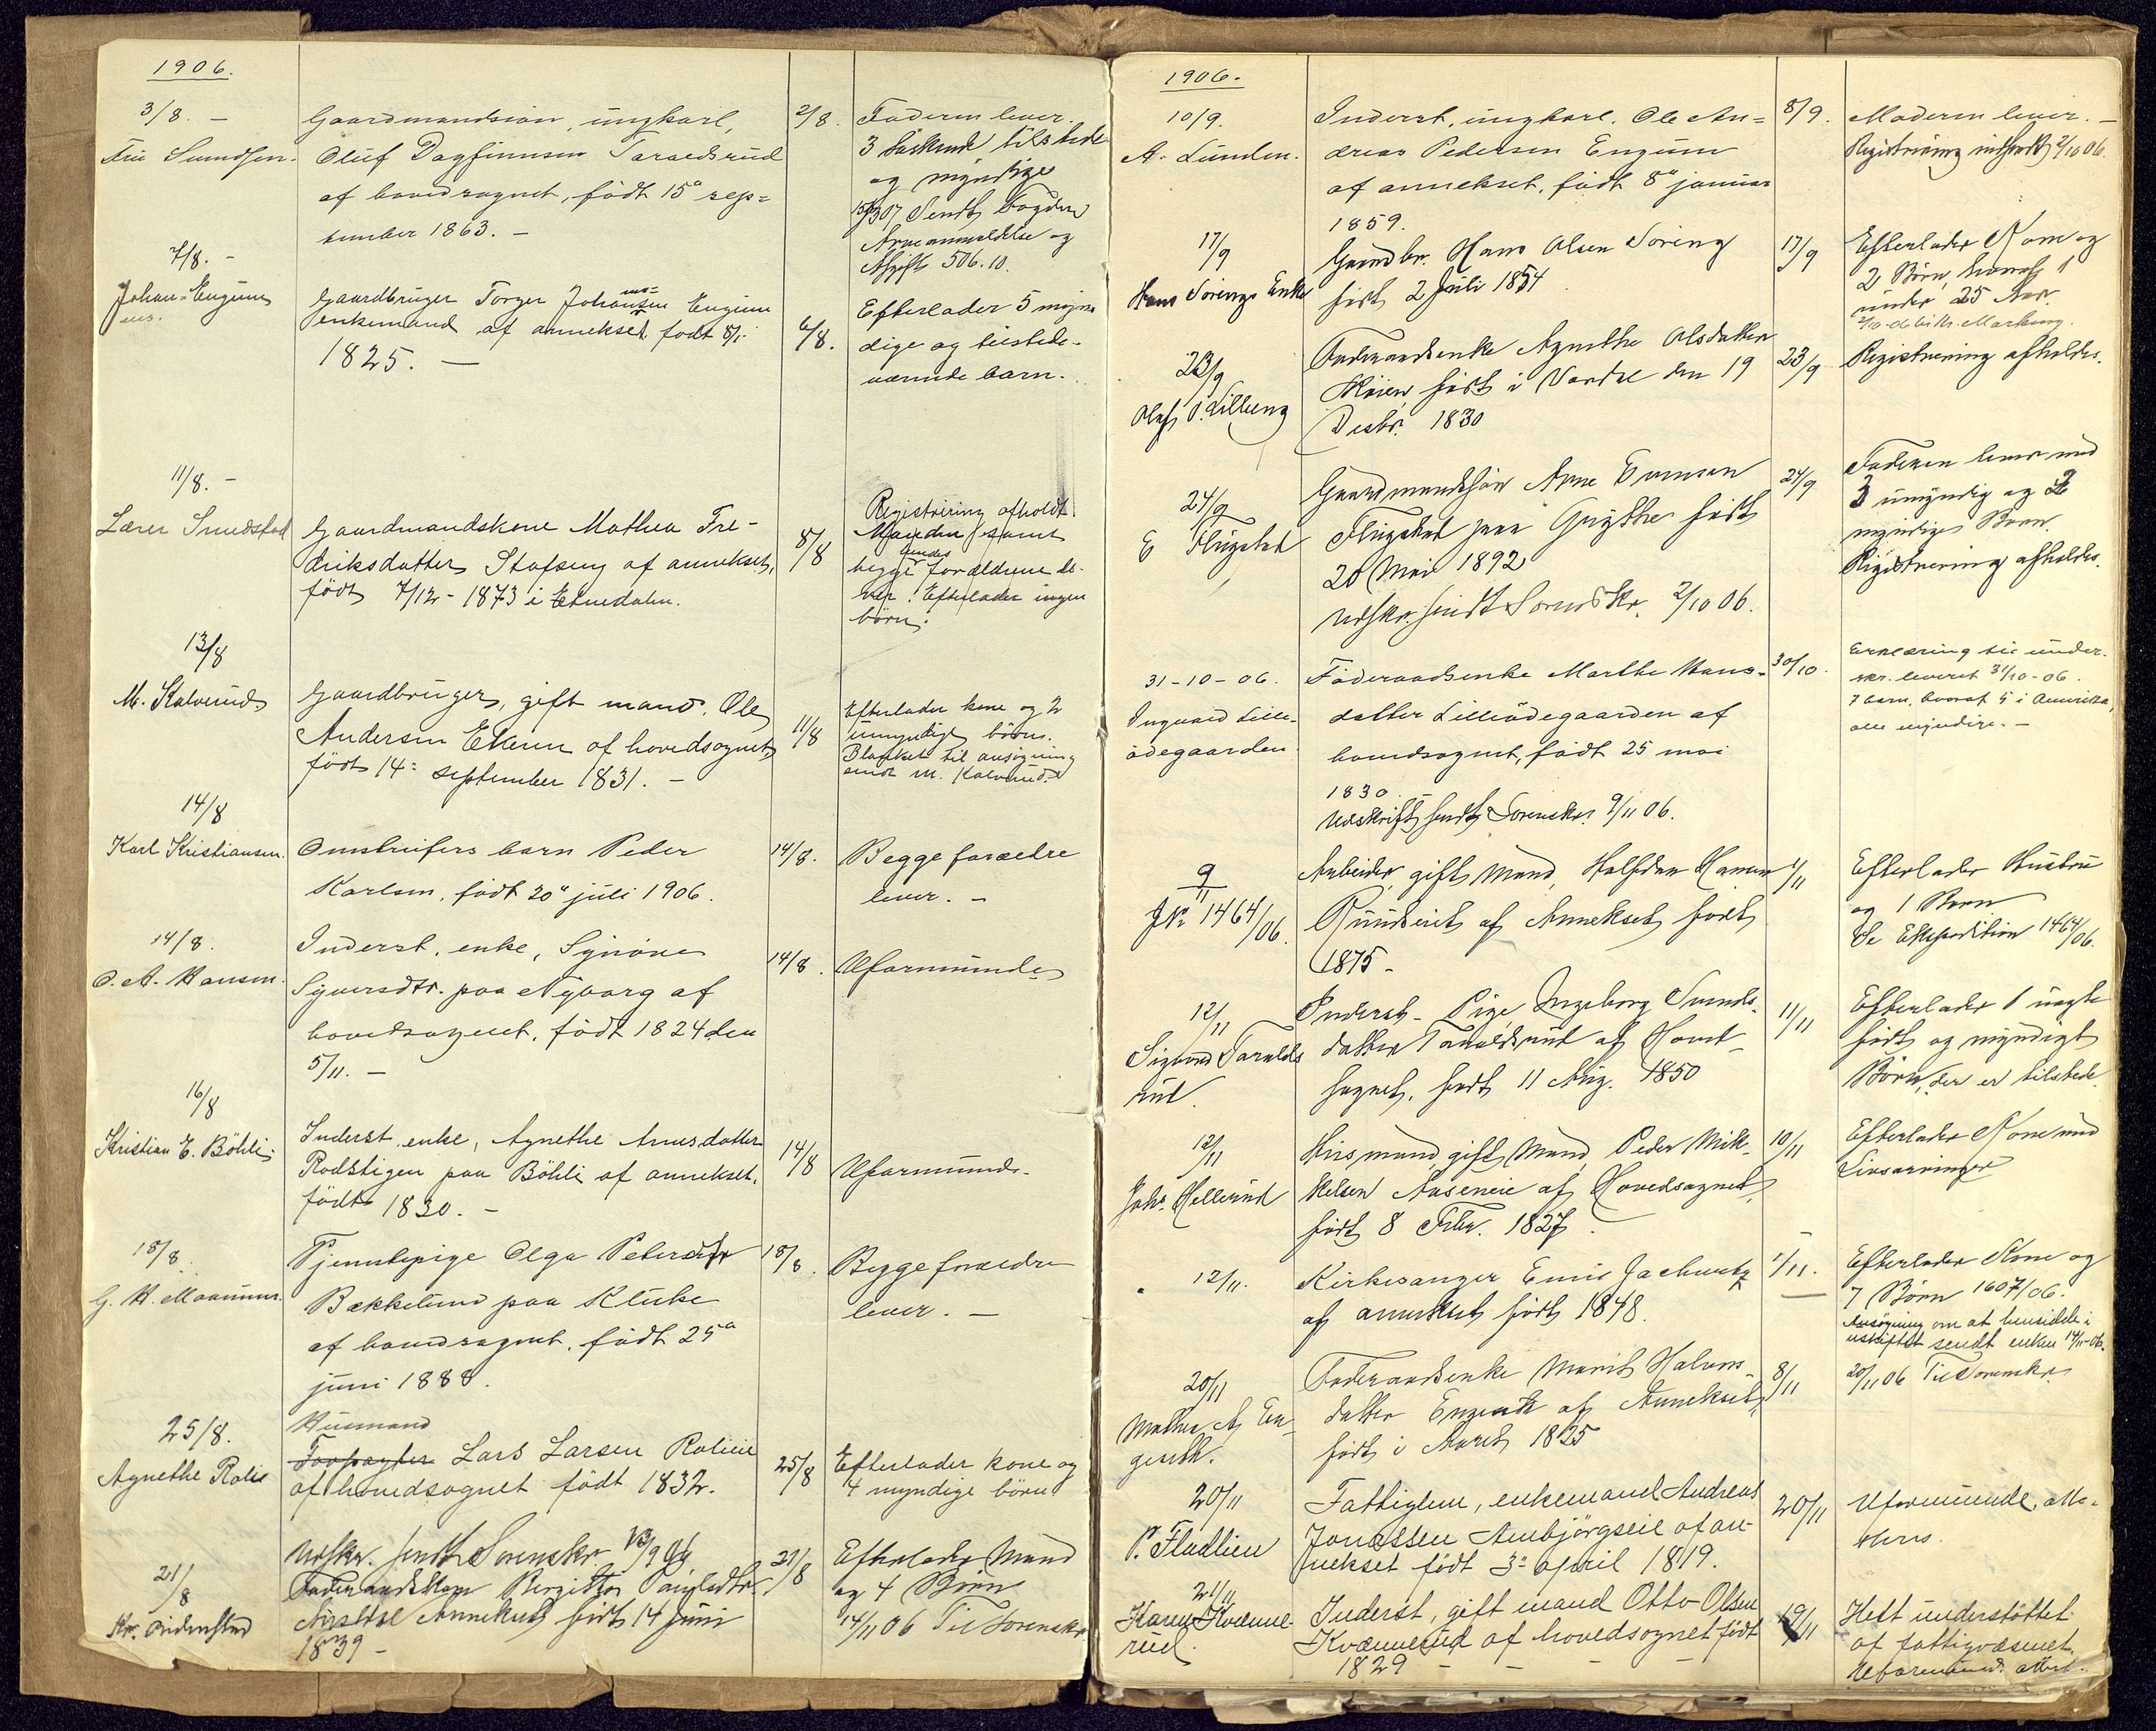 1906.
3/8. –
Gaardmandssøn, ungkarl,
2/8.
Faderen lever.
Fru Svendsen.
Oluf Dagfinnsen Taraldsrud
3 søskende tilstede
af hovedsognet, født 15de sep=
og myndige
tember 1863. –
Sendt Fogden
Arveanmeldelse og
Afgift 506.10.
7/8. –
Johan Engum
Gaardbruger Torger Johannesen Engum
enkemand af annekset født 8/1
1825. –
6/8.
Efterlader 5 myn-
dige og tilstede-
værende barn.
11/8. –
Lærer Smedstad
Gaardmandskone Mathea Fre-
driksdatter Stafseng af annekset,
født 7/12 - 1873 i Etnedalen.
8/8
Registrering afholdt.
Manden samt
begge hendes forældrene le-
ver. Efterlader ingen
børn.
13/8
M. Kalverud
Gaardbruger, gift mand, Ole
Andersen Ekern af hovedsognet,
født 14de september 1831. –
11/8
Efterlader kone og 2
umyndige børn.
Blanket til ansøgning
sendt M. Kalverud.
14/8
Karl Kristiansen.
Omstreifers barn Peder
Karlsen, født 20de juli 1906.
14/8.
Begge forældre
lever. –
14/8.
O. A. Hansen.
Inderst, enke, Synøve
Syversdtr. paa Nyborg af
hovedsognet, født 1824 den
5/11. –
14/8.
Uformuende
16/8
Kristian E. Böhli.
Inderst, enke, Agnethe Arnesdatter
Rodstigen paa Böhli af annekset,
født 1830. –
14/8
Uformuende.
18/8.
G. H. Moanum.
Tjenestepige Olga Petersdtr
Bækkelund paa Klüke
af hovedsognet, født 25de
juni 1888.
18/8.
Begge forældre
lever. –
25/8.
Agnethe Rolie
Husmand
Forpagter Lars Larsen Roliеie
af hovedsognet født 1832.
25/8
Efterlader kone og
4 myndige børn
Udskr. sendt Sorenskr.
21/8
Føderaadskone Birgitte
Annekset født 14 Juni
1839 –
21/8
Efterlader Mand
og 4 Børn
14/11 06 Til Sorenskr.
1906.
10/9.
A. Lunden.
Inderst, ungkarl, Ole An=
dreas Pedersen Engum
af annekset, født 8de januar
1859.
8/9.
Moderen lever. –
Registrering indsendt 2/10 06.
17/9
Hans Sørengs Enke
Gaardbr. Hans Olsen Søreng
født 2 Juli 1854
17/9
Efterlader Kone og
2 Børn, hvoraf 1
under 25 Aar.
23/9
Olaf O. Lilleeng
Føderaadsenke Agnethe Olsdatter
Moien født i Vardal den 19
Desbr. 1830
23/9
Registrering afholdes.
24/9
E Flugstad
Gaardmandssøn Arne Evensen
Flugstad født
20 Mai 1892
Udskr. sendt Sorenskr. 2/10 06.
24/9
Faderen lever med
3 umyndig og 2
myndige Børn.
Registrering afholdes.
31-10-06.
Ingvald Lille-
ødegaarden
Føderaadsenke Marthe Hans-
datter Lilleødegaarden af
hovedsognet, født 25 mai
1830. –
Udskrift sendt Sorenskr. 9/11 06.
30/10.
Erklæring til under-
skr. leveret 31/10-06.
7 barn, hvoraf 4 i Amerika,
alle myndige. –
9/11
J№ 1464/06.
Arbeider, gift Mand, Halfdan Hansen
af Annekset født
1875 –
1/11
Efterlader Hustru
og 1 Barn
Se Ekspedition 1464/06.
12/11
Sigvard Taralds
rud.
Inderst – Pige Ingeborg Svends-
datter Taraldsrud af Hoved-
sognet, født 11 Aug. 1850
11/11
Efterlader 1 uægte
født og myndigt
Børn, der er tilstede.
12/11
Johs. Hellerud
Husmand, gift Mand, Peder Mik-
kelsen Aaseneie af Hovedsognet,
født 8 Febr. 1827
10/11
Efterlader Kone med
Livsarvinger
12/11.
Kirkesanger Emil Jachwitz
af annekset født 1848.
1/11.
Efterlader Kone og
7 Børn 1607/06.
Ansøgning om at hensidde i
uskiftet sendt enken 14/11-06.
20/11
Mathias A En
geseth.
Føderaadsenke Marit Halvors
datter Engeseth af Annekset,
født i Marts 1825
8/11
20/11 06 Til Sorenskr.
20/11
P. Fladlien
Fattiglem, enkemand Andreas
Jonassen Ambjørgseie af an-
nekset født 3de april 1819.
20/11
Uformuende.
21/11
Karen Kvænne-
rud.
Inderst, gift mand Otto Olsen
Kvænnerud af hovedsognet født
1829 – – – –
19/11
Helt understøttet
af fattigvæsenet.
Uformuende